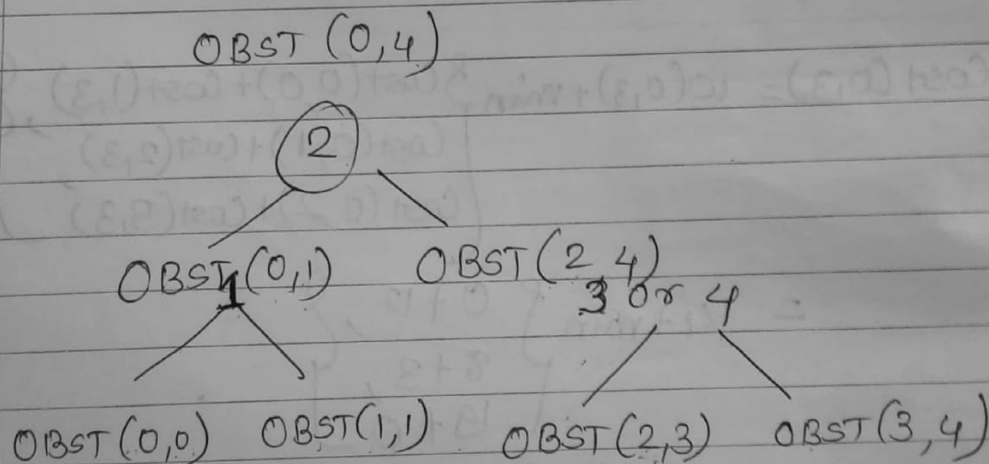 OBST (0,4)
2
OBST (0,1) OBST (2,4)
1 3 or 4
OBST (0,0) OBST (1,1) OBST (2,3) OBST (3,4)